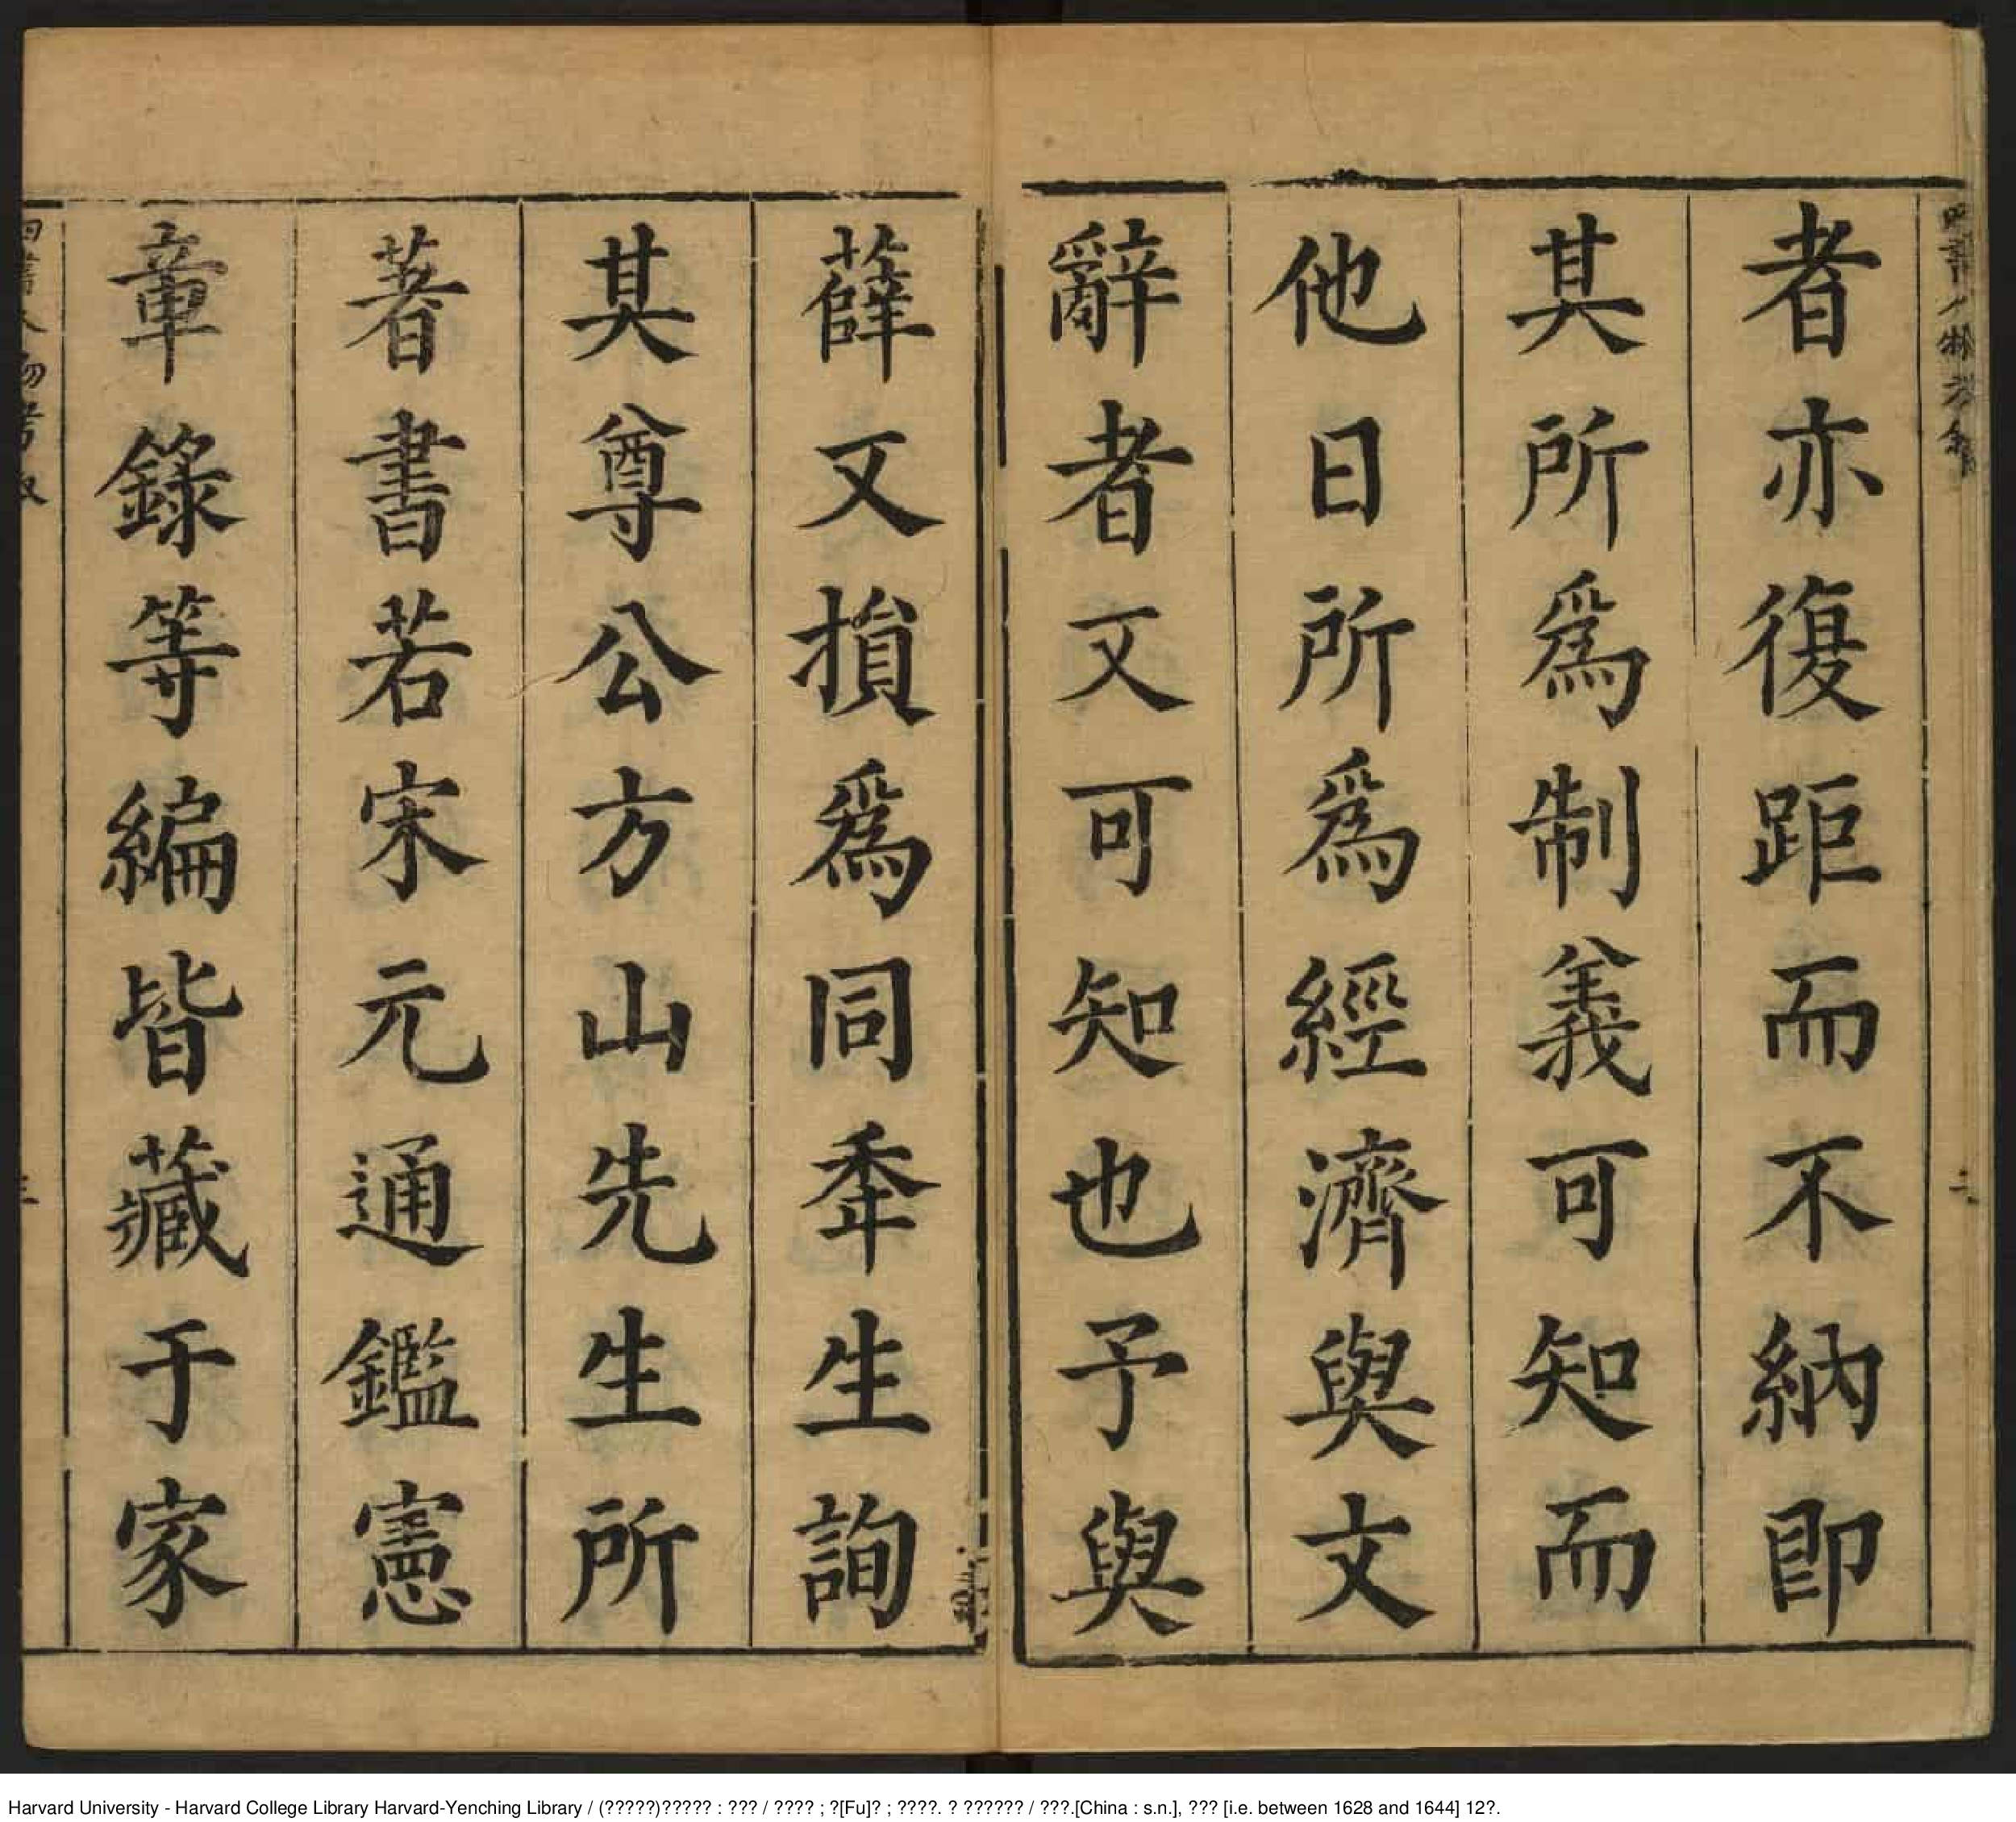 者亦復距而不納即
其所爲制義可知而
他日所爲經濟與文
辭者又可知也予與
薛又損爲同秊生詢
其尊公方山先生所
著書若宋元通鑑憲
章錄等編皆藏于家
四書人物考叙
三
Harvard University - Harvard College Library Harvard-Yenching Library / (?????)????? : ??? / ???? ; ?[Fu]? ; ????. ? ?????? / ???.[China : s.n.], ??? [i.e. between 1628 and 1644] 12?.